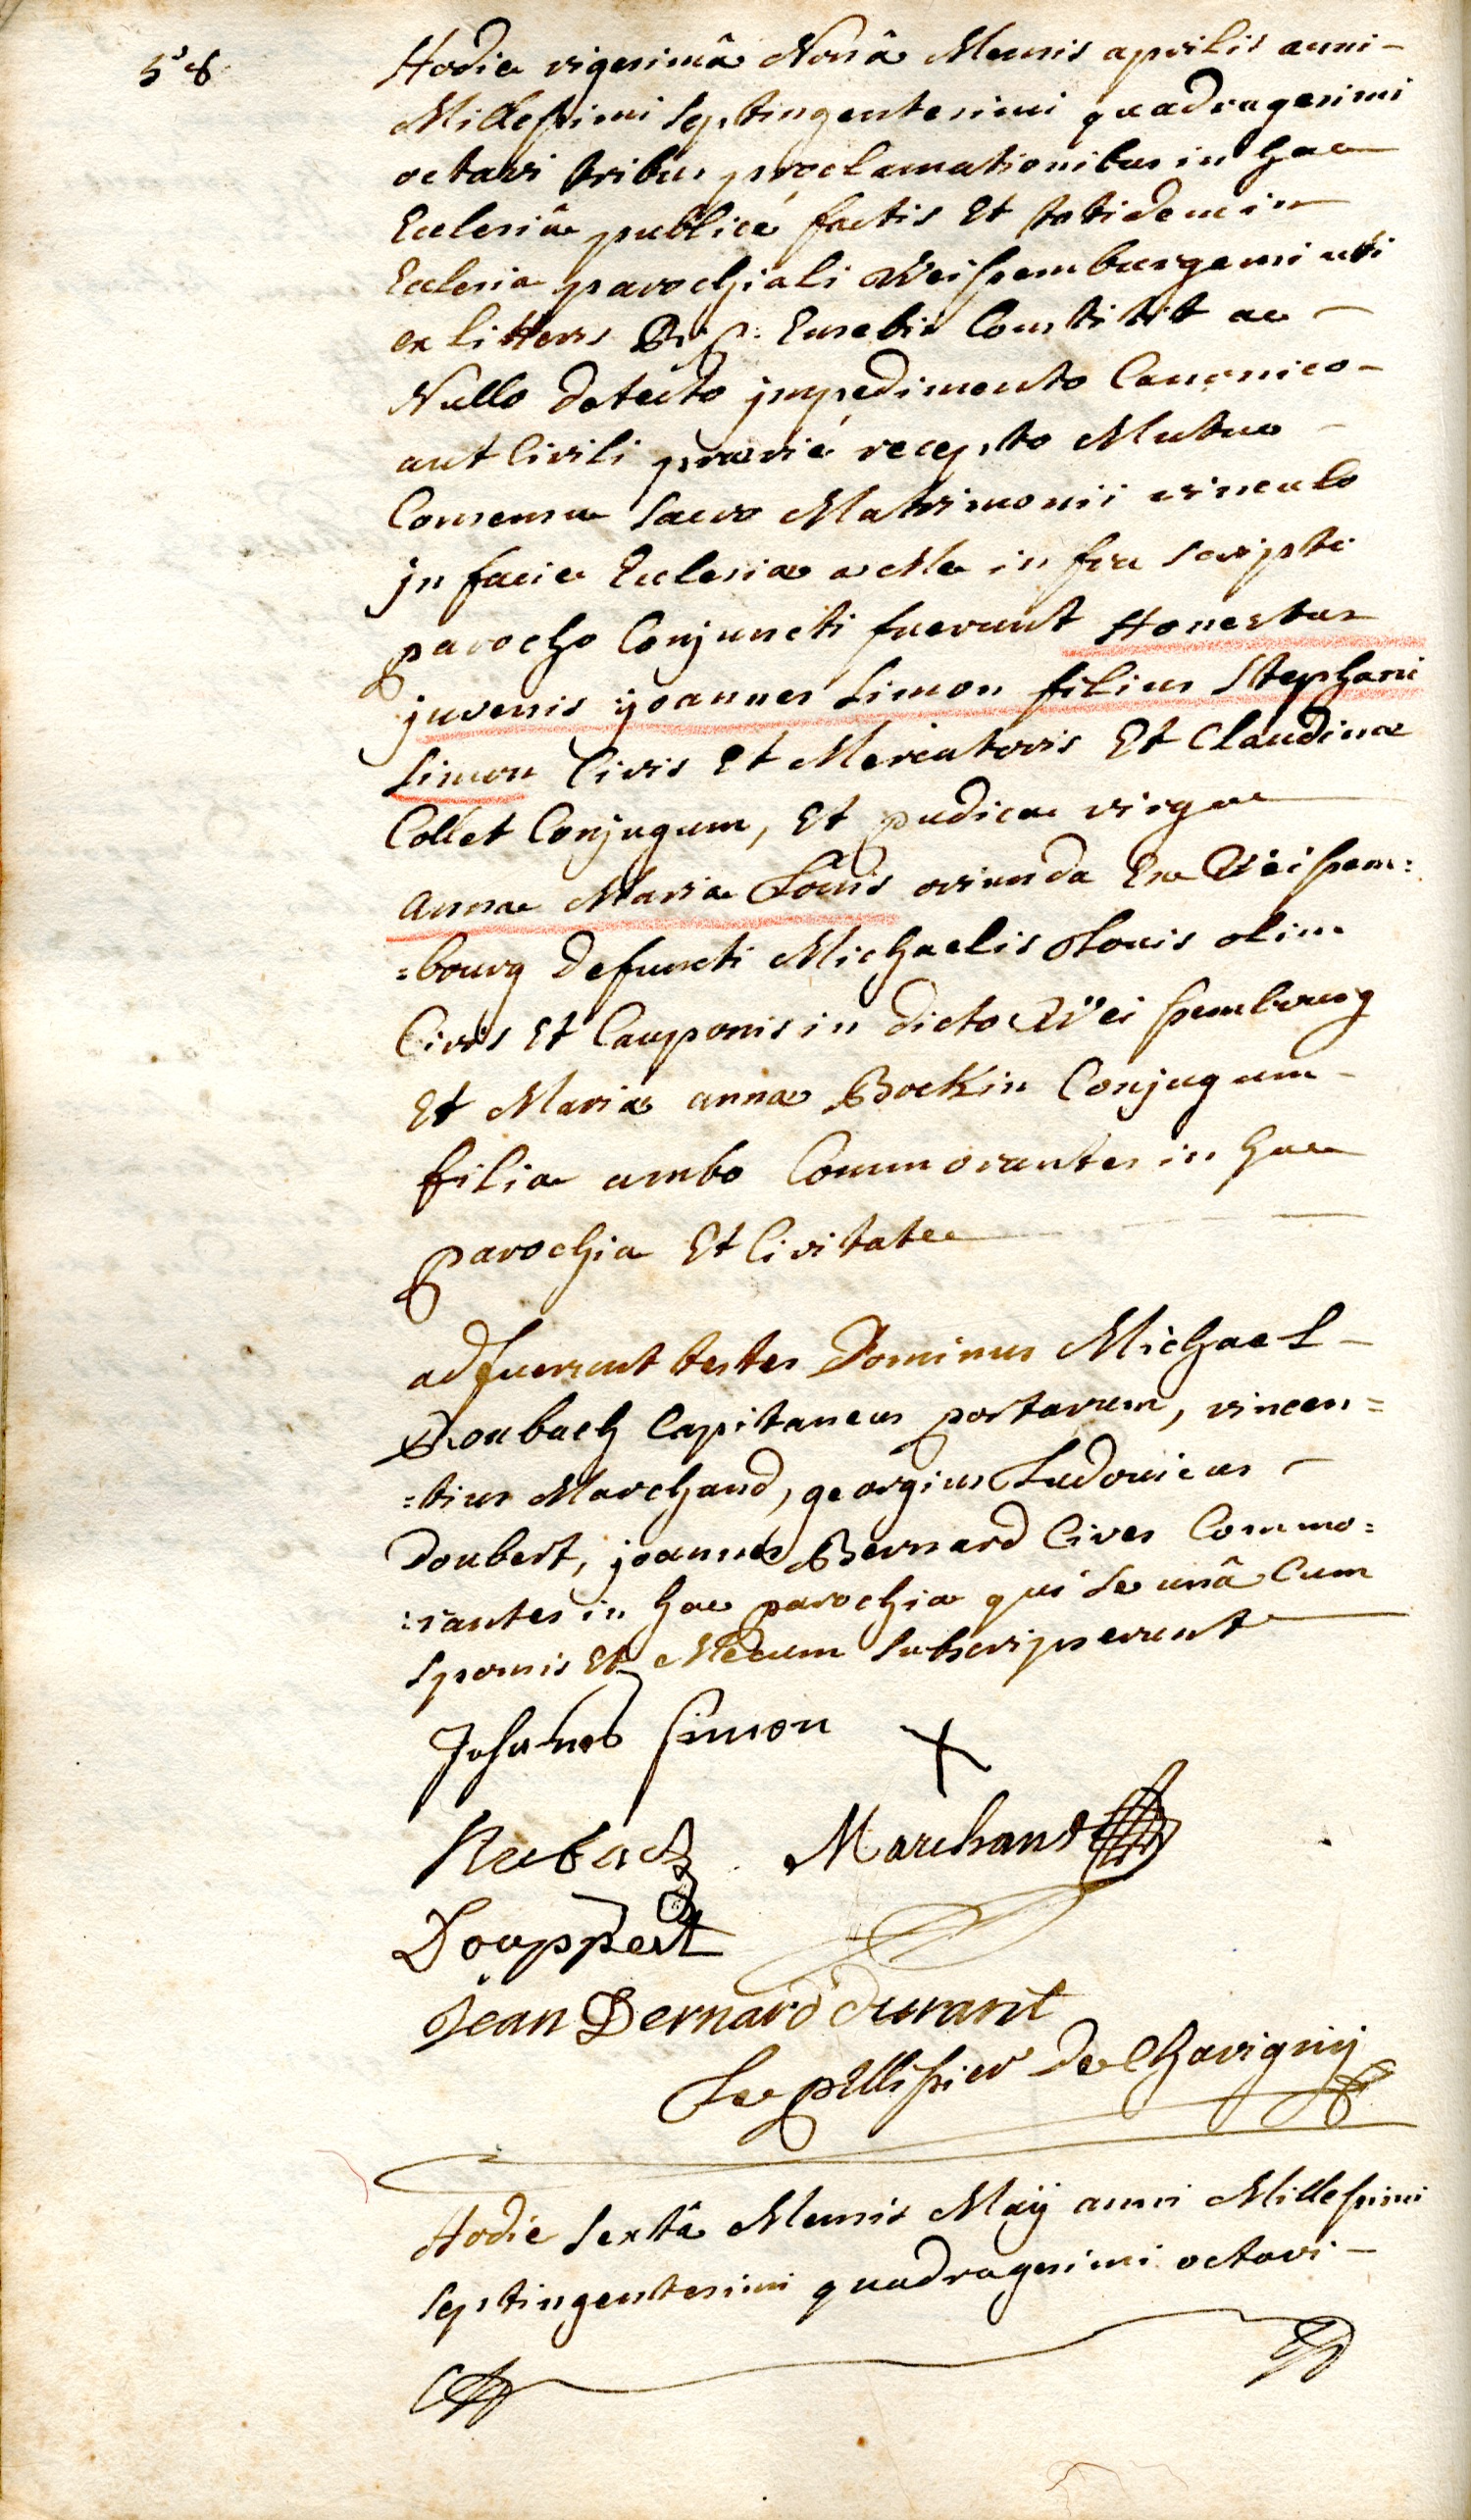 58
Hodie vigesimâ Nonâ Mensis aprilis anni -
Millessimi septingentesimi quadragesimi
octavi tribus proclamationibus in hac
Ecclesiâ publicé factis Et totidem in
Ecclesia parochiali Weissemburgensi uti
ex litteris R. P. Eusebii Constitit ac -
Nullo detecto jmpedimento Canonico -
aut Civili prævié recepto Mutuo -
Consensu sacro Matrimonii vinculo
jn facie Ecclesiæ a Me infra scripto
parocho Conjuncti fuerunt Honestus
juvenis joannes Simon filius Stephani
Simon Civis Et Mercatoris Et Claudinæ
Collet Conjugum, Et pudica virgo
anna Maria Louis oriunda Ex Weissem:
=bourg defuncti Michaelis Louis olim
Civis Et Cauponis in dicto Weissembourg
Et Mariæ annæ Bockin Conjugum -
filia ambo Commorantes in hac
parochia Et Civitate
adfuerunt testes Dominus Michael -
Roubach Capitaneus portarum, vincen=
=tius Marchand, georgius Ludovicus -
Doubert, joannes Bernard Cives Commo=
:rantes in hac parochia qui se unâ Cum
sponsis Et Mecum subscripserunt
Johannes Simon X
Rubach Marchand
Douppert
Jean Bernard durant
Le pellissier de Chavigny
Hodie sextâ Mensis Maÿ anni Millessimi
septingentesimi quadragesimi octavi -